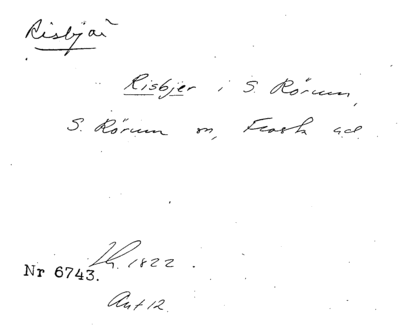 Risbjär
Risbjer i S. Rörum,
S. Rörum sn, Frosta hd
Lh. 1822.
Nr 6743.
Ant 12.